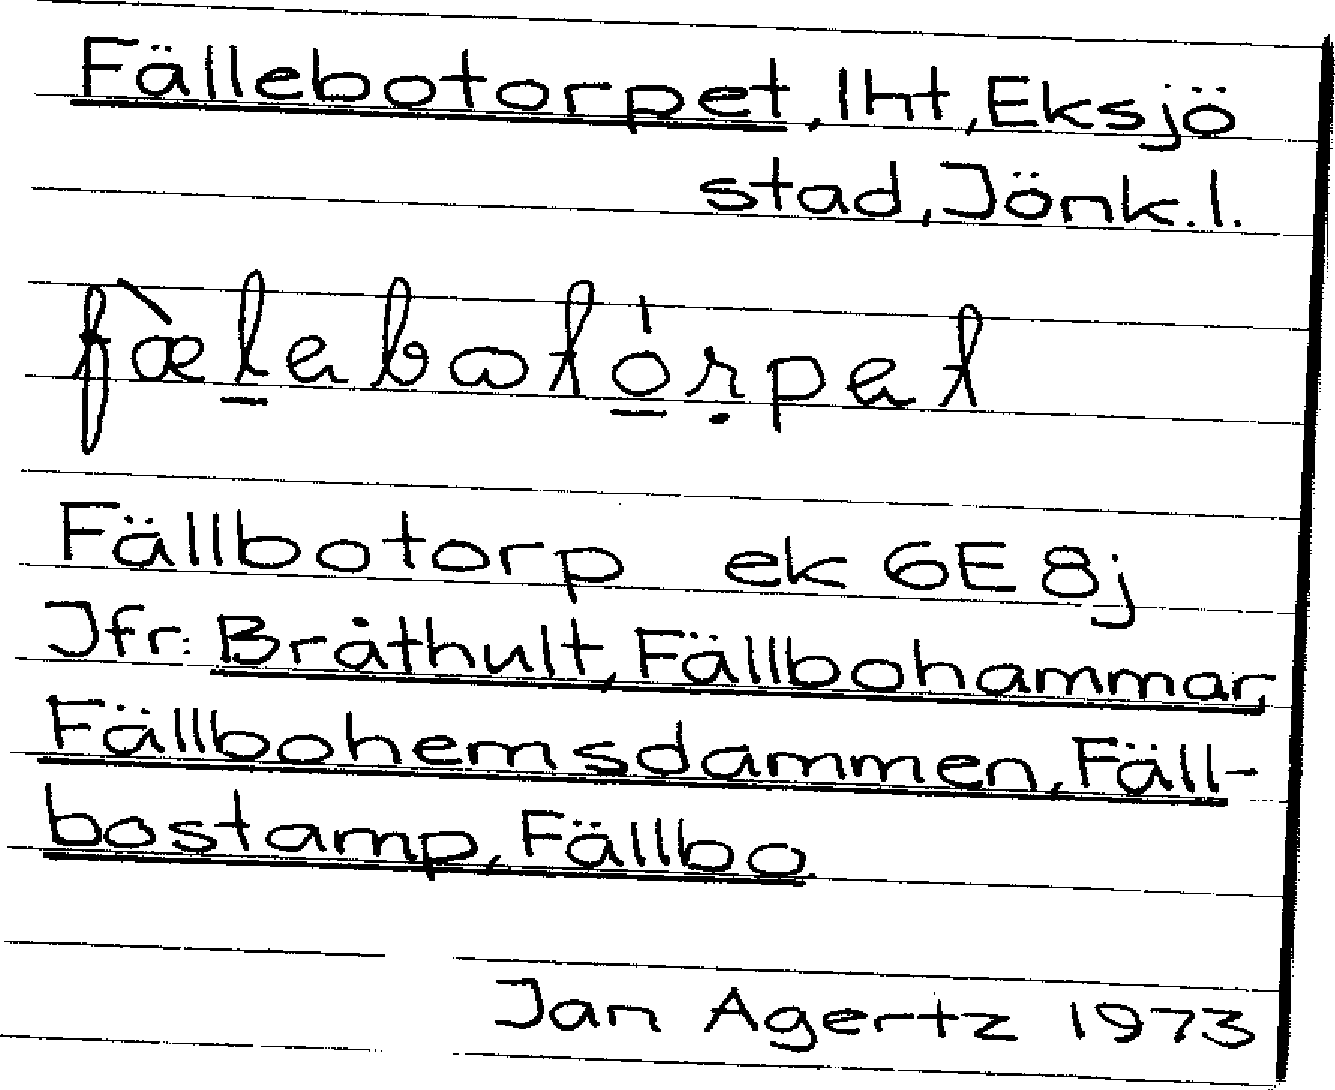 Fällebotorpet, lht, Eksjö
stad, Jönk.l.
fæ̀l̠ebɷtó̠ṛpet
Fällbotorp ek 6E 8j
Jfr: Bråthult, Fällbohammar,
Fällbohemsdammen, Fäll-
bostamp, Fällbo
Jan Agertz 1973